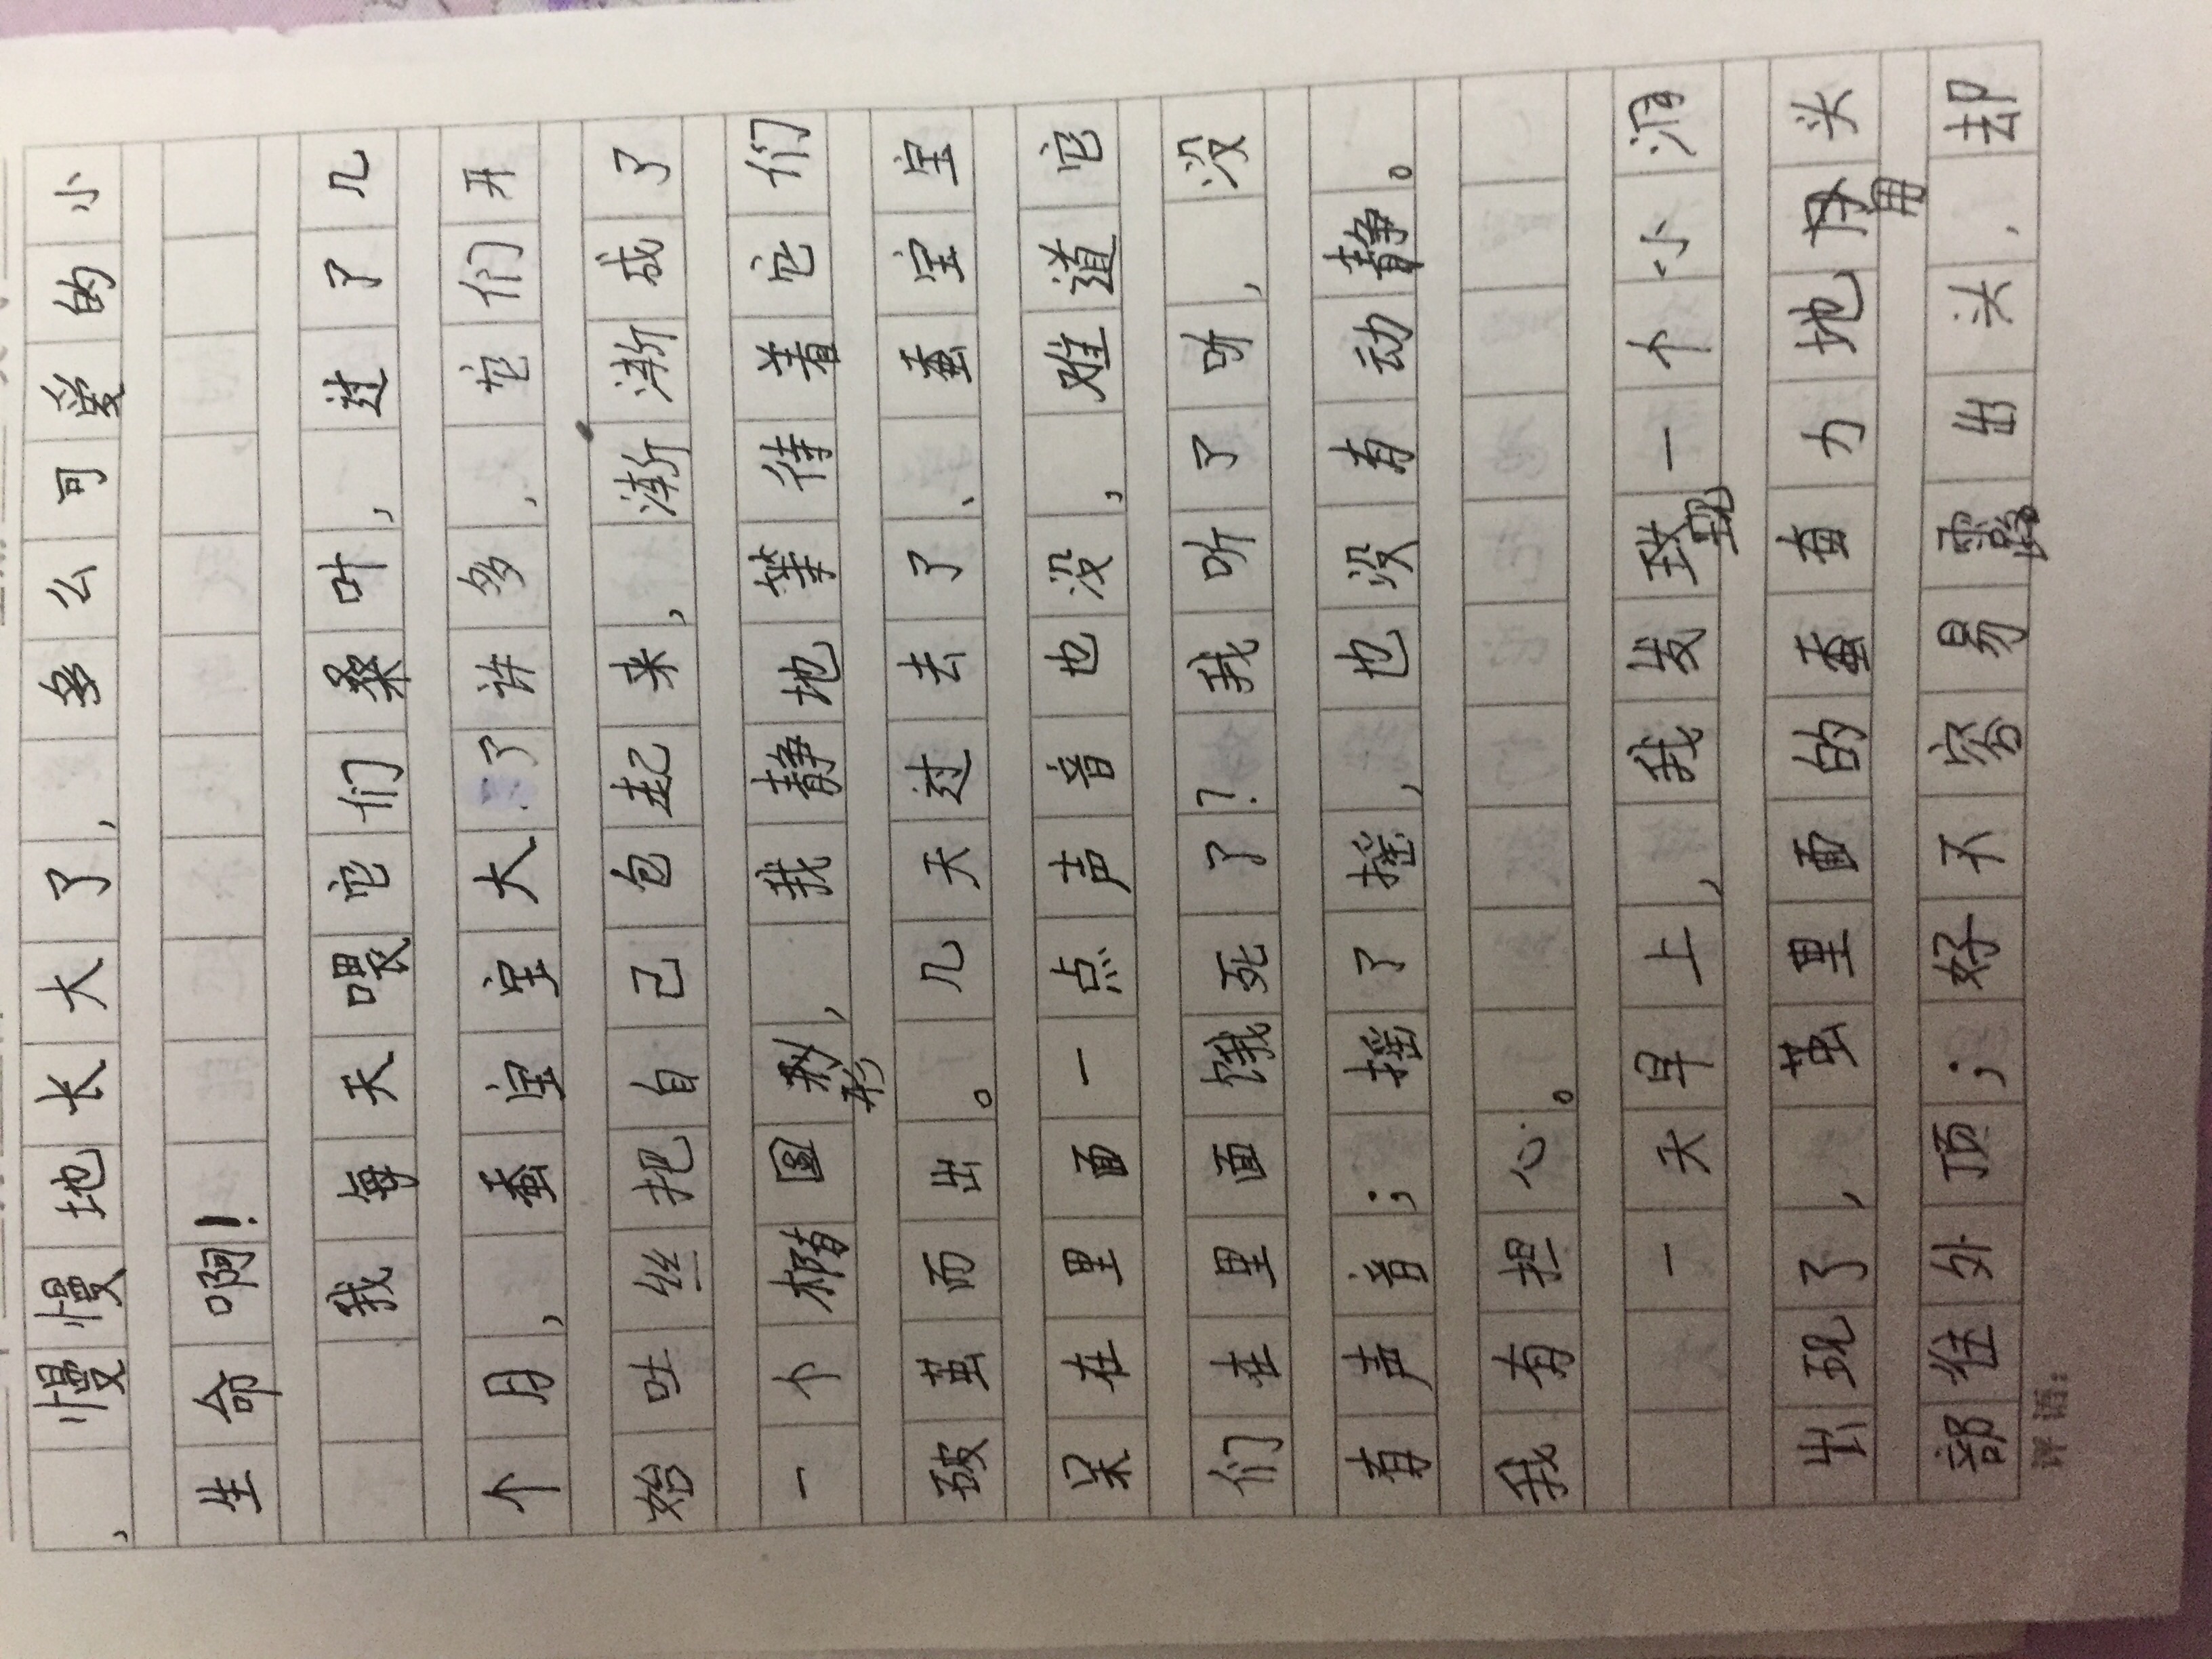 ，慢慢地长大了，多么可爱的小
生命啊！
我每天喂它们桑叶，过了几
个月，蚕宝宝大了许多，它们开
始吐丝把自己包起来，渐渐成了
一个椭圆形，我静静地等待着它们
破茧而出。几天过去了、蚕宝宝
呆在里面一点声音也没，难道它
们在里面饿死了？我听了听，没
有声音；摇了摇，也没有动静。
我有担心。
一天早上，我发现一个小小洞
出现了，茧里面的蚕有力地用头
部往外顶；好不容易露出头，却
评语：